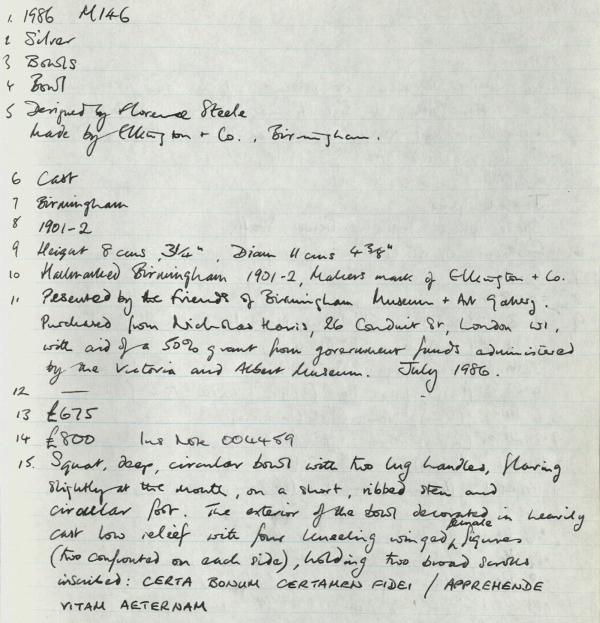 1. 1986 M146
2 Silver
3 Bowls
4 Bowl
5 Designed by Florence Steele
Made by Elkington + Co., Birmingham.
6 Cast
7 Birmingham
8 1901-2
9 Height 8 cms, 3¼", Diam 11 cms 4⅜"
10 Hallmarked Birmingham 1901-2, Makers mark of Elkington + Co.
11 Presented by the Friends of Birmingham Museum + Art Gallery.
Purchased from Nicholas Harris, 26 Conduit St, London W1,
with aid of a 50% grant from government funds administered
by the Victoria and Albert Museum. July 1986.
12 —
13 £675
14 £800 Ins Note 004459
15. Squat, deep, circular bowl with two lug handles, flaring
slightly at the mouth, on a short, ribbed stem and
circular foot. The exterior of the bowl decorated in heavily
cast low relief with four kneeling winged female figures
(two confronted on each side), holding two broad scrolls
inscribed: CERTA BONUM CERTAMEN FIDEI / APPREHENDE
VITAM AETERNAM